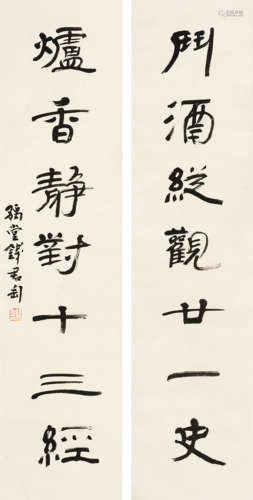 鬥酒縱觀廿一史
爐香靜對十三經
豫堂錢君匋